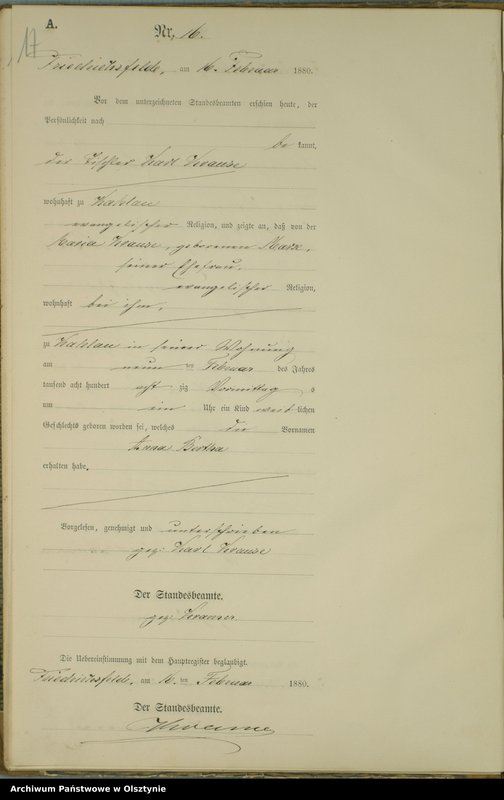 A.
17
Nr. 16.
Friedrichsfelde, am 16. Februar 1880.
Vor dem unterzeichneten Standesbeamten erschien heute, der
Persönlichkeit nach
be kannt,
der Tischler Karl Krause
wohnhaft zu
evangelischer Religion, und zeigte an, daß von der
Maria Krause, geborenen
seiner Ehefrau,
evangelischer Religion,
wohnhaft bei ihm,
zu in seiner Wohnung
am neun ten Februar des Jahres
tausend acht hundert acht zig Vormittag s
um ein Uhr ein Kind weib lichen
Geschlechts geboren worden sei, welches die Vornamen
Anna Bertha
erhalten habe.
Vorgelesen, genehmigt und unterschrieben
gez: Karl Krause
Der Standesbeamte.
gez:
Die Uebereinstimmung mit dem Hauptregister beglaubigt.
Friedrichsfelde, am 16. ten Februar 1880.
Der Standesbeamte.
Archiwum Państwowe w Olsztynie